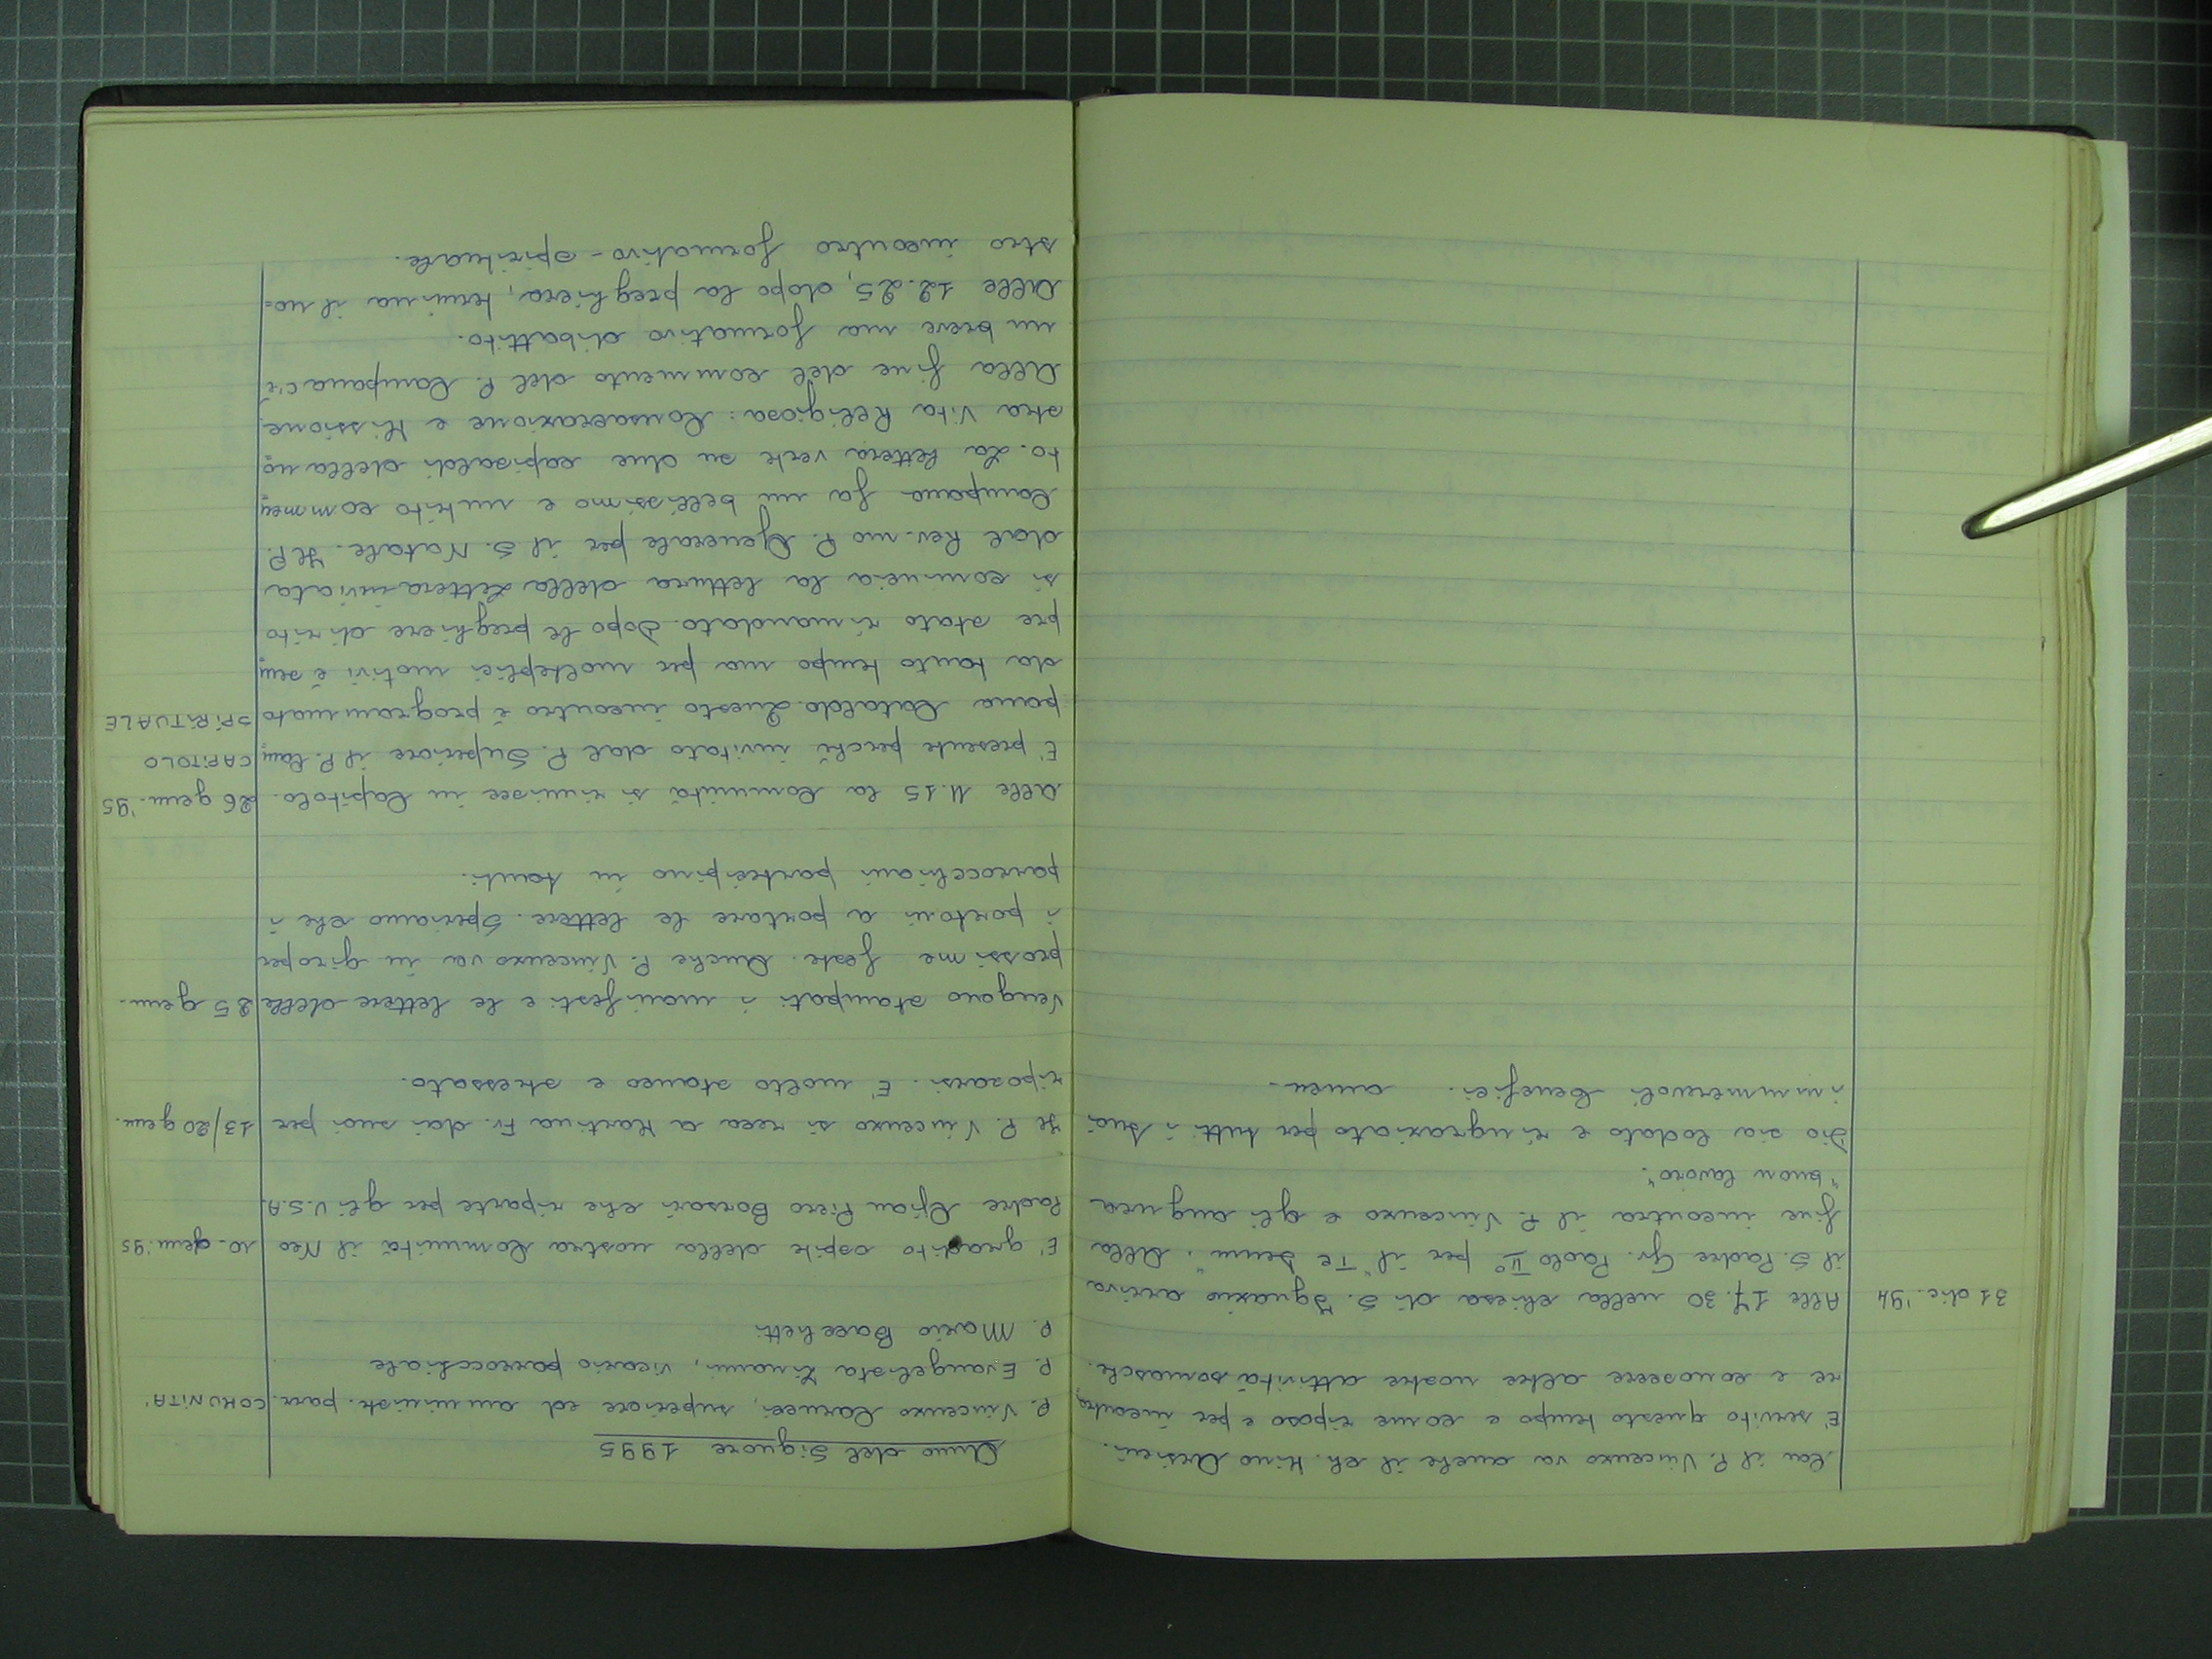 Con il P. Vincenzo va anche il ch. Mino Arsieni.
E' servito questo tempo e come riposo e per incontra
re e conoscere altre nostre attività somasche.
31 dic. '94 Alle 17.30 nella chiesa di S. Ignazio arriva
il S. Padre Gv. Paolo II° per il "Te Deum". Alla
fine incontra il P. Vincenzo e gli augura
"buon lavoro".
Dio sia lodato e ringraziato per tutti i suoi
innumerevoli benefici. amen.-
Anno del Signore 1995
P. Vincenzo Carucci, superiore ed amministr. parr. COMUNITA'
P. Evangelista Zimaini, vicario parrocchiale
P. Mario Bacchetti
E' gradito ospite della nostra Comunità il Neo 10-gen.'95
Padre Gian Piero Borsari che riparte per gli U.S.A.
Il P. Vincenzo si reca a Martina Fr. dai suoi per 13/20 gen.
riposarsi. E' molto stanco e stressato.
Vengono stampati i manifesti e le lettere delle 25 gen.
prossime feste. Anche P. Vincenzo va in giro per
i portoni a portare le lettere. Speriamo che i
parrocchiani partecipino in tanti.
Alle 11.15 la Comunità si riunisce in Capitolo. 26 gen. '95
E' presente perchè invitato dal P. Superiore il P. Cam CAPITOLO
pana Cataldo. Questo incontro è programmato SPIRITUALE
da tanto tempo ma per molteplici motivi è sem
pre stato rimandato. Dopo le preghiere di rito
si comincia la lettura della Lettera inviata
dal Rev.mo P. Generale per il S. Natale. Il P.
Campana fa un bellissimo e nutrito commen
to. La lettera verte su due capisaldi della no
stra Vita Religiosa: Consacrazione e Missione.
Alla fine del commento del P. Campana c'è
un breve ma formativo dibattito.
Alle 12.25, dopo la preghiera, termina il no=
stro incontro formativo-spirituale.